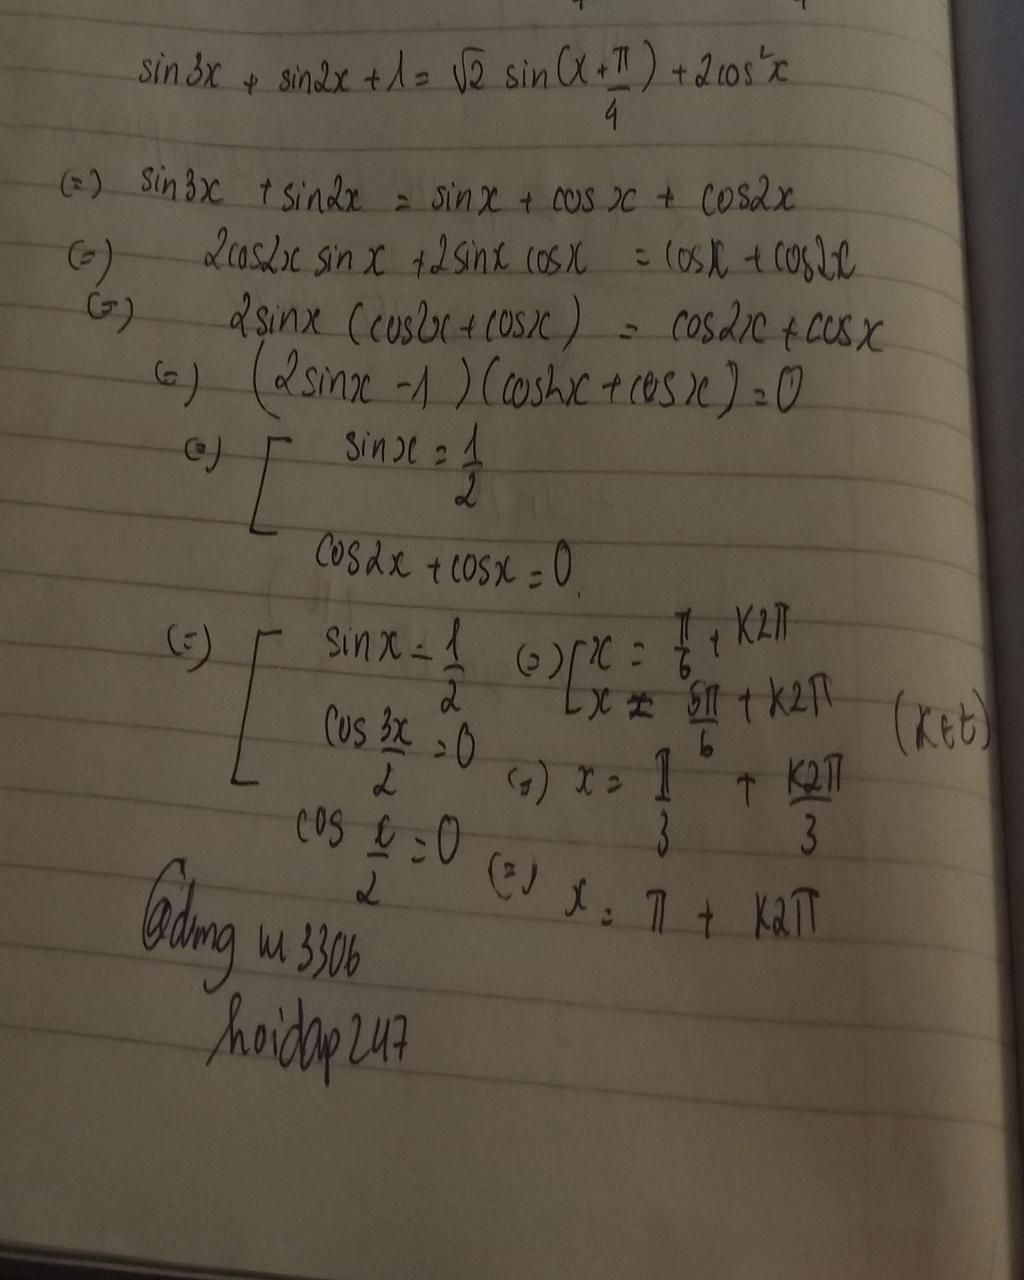 sin3x + sin2x + 1 = √2 sin(x + π/4) + 2cos²x
(=) sin3x + sin2x = sinx + cos x + cos2x
(=) 2cos2x sin x + 2sinx cosx = cosx + cos2x
(=) 2sinx (cos2x + cosx) = cos2x + cosx
(=) (2sinx - 1)(cos2x + cosx) = 0
(=) [ sinx = 1/2
cos2x + cosx = 0.
(=) [ sinx = 1/2 (=) [ x = π/6 + K2π
x = 5π/6 + K2π (K∈Z)
cos 3x/2 = 0 (=) x = π/3 + K2π/3
cos x/2 = 0 (=) x = π + K2π
hoidap247